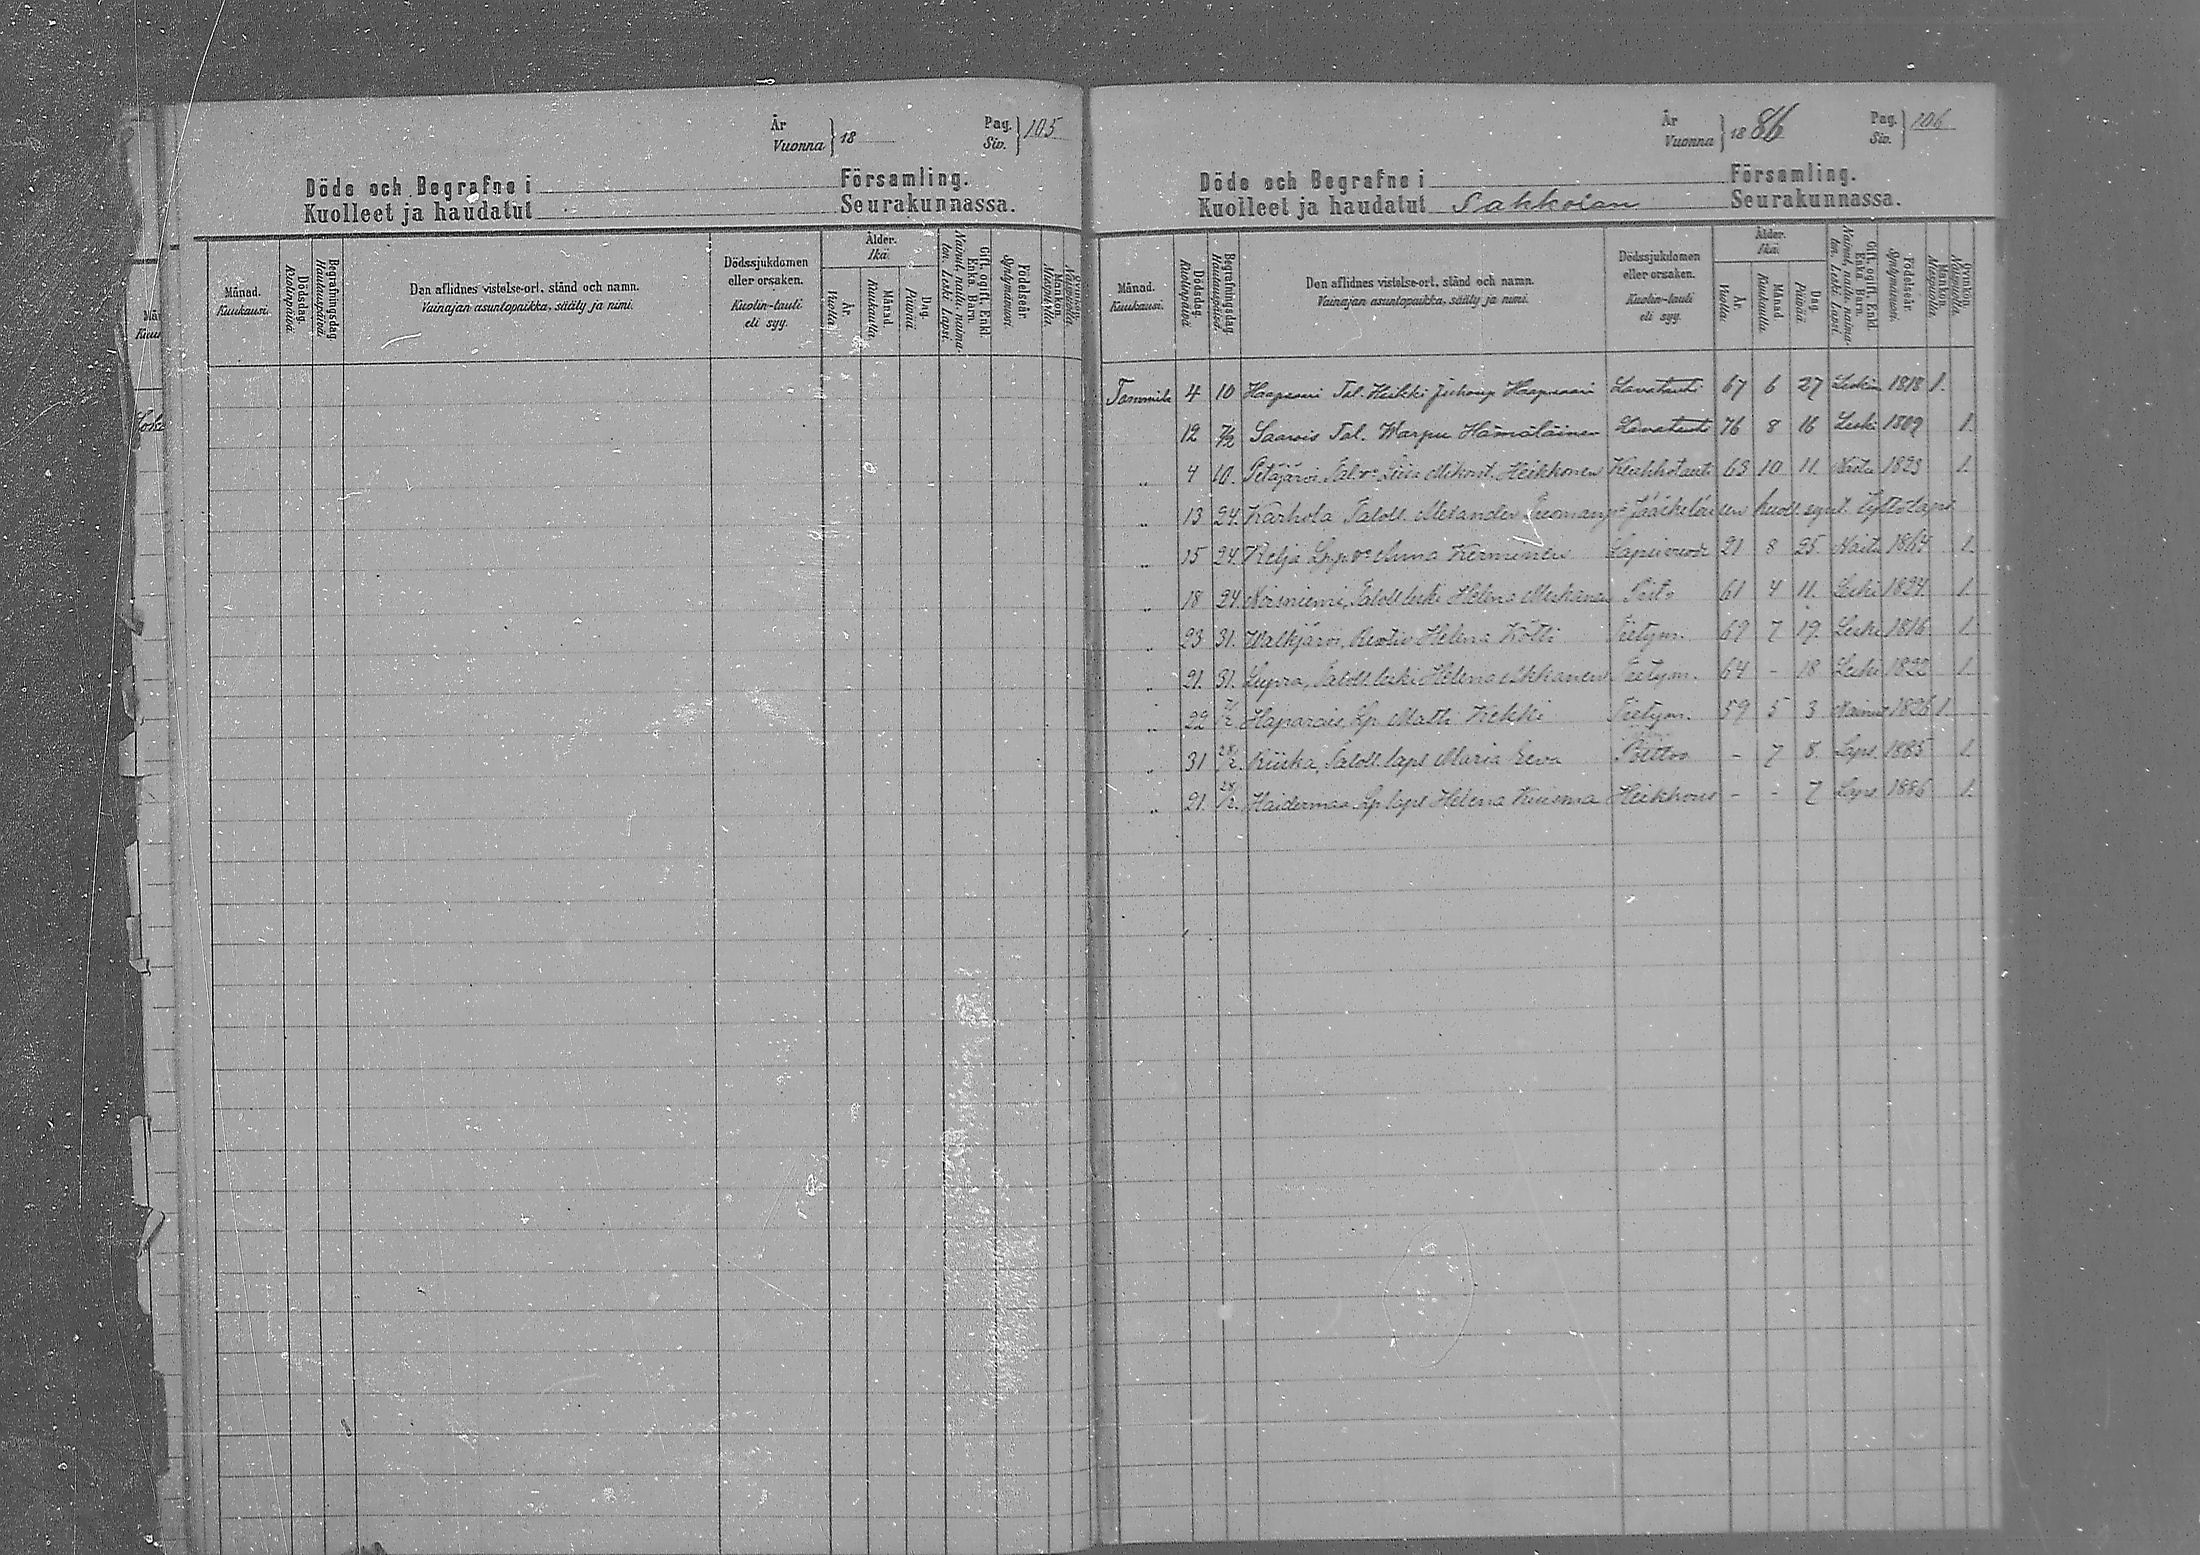 År
Vuonna } 18
Pag.
Siv. } 105
Döde och Begrafne i Församling.
Kuolleet ja haudatut Seurakunnassa.
Månad.
Kuukausi.
Dödsdag.
Kuolinpäivä
Begrafningsdag
Hautauspäivä.
Den aflidnes vistelse-ort, stånd och namn.
Vainajan asuntopaikka, sääty ja nimi.
Dödssjukdomen
eller orsaken.
Kuolin-tauti
eli syy.
Ålder.
Ikä.
År.
Vuotta
Månad.
Kuukautta
Dag.
Päivää
Gift, ogift, Enkl.
Enka. Barn.
Nainut, naitu, naima-
ton. Leski. Lapsi.
Födelseår.
Syntymävuosi.
Mankön.
Miespuolta
År
Vuonna } 1886
Pag.
Siv. } 106
Döde och Begrafne i Församling.
Kuolleet ja haudatut Sakkolan Seurakunnassa.
Månad.
Kuukausi.
Dödsdag.
Kuolinpäivä
Begrafningsdag.
Hautauspäivä.
Den aflidnes vistelse-ort, stånd och namn.
Vainajan asuntopaikka, sääty ja nimi.
Dödssjukdomen
eller orsaken.
Kuolin-tauti
eli syy.
Ålder.
Ikä.
År.
Vuotta
Månad
Kuukautta
Dag.
Päivää.
Gift, ogift, Enkl.
Enka. Barn.
Nainut, naitu, naima-
ton. Leski. Lapsi.
Födelseår.
Syntymävuosi.
Mankön.
Miespuolta.
Qvinkön.
Naispuolta.
Tammik 4 10 Haapsaari Tal. Heikki Juhonp Haapsaari Lavatauti 67 6 27 Leskim 1818 1.
12 7/2 Saarois Tal. Warpu Hämäläinen Lavatauti 76 8 16 Leski 1809 1.
„ 4 10. Petäjärvi, Tal.v. Liisa Mikont. Heikkonen Keuhkotauti 63 10 11. Naitu 1823 1.
„ 13 24. Karhola Taloll. Metander Tuomanp. Jääskeläisen kuoll. synt. tyttölapsi
„ 15 24. Kelja Lp.v. Anna Kerminen Lapsivuode 21 8 25. Naitu 1864 1.
„ 18 24. Noisniemi, Taloll. leski Helena Meskanen Pisto 61 4 11. Leski 1824. 1.
„ 23 31. Walkjärvi, Helena Kötti Tietym. 69 7 19. Leski 1816 1.
„ 21. 31. Lupra, Taloll. leski Helena Ikkanen Tietym. 64 - 18 Leski 1822 1.
„ 22 7/2 Haparais, Lp. Matti Kekki Tietym. 59 5 3. Nainut 1826 1.
„ 31 28/2. Riiska, Taloll. laps. Maria Eeva Polttoo - 7 8. Laps. 1885 1.
„ 21. 28/2. Haidermaa Lp. laps. Helena Kuisma Heikkous - - 7 Laps. 1886 1.